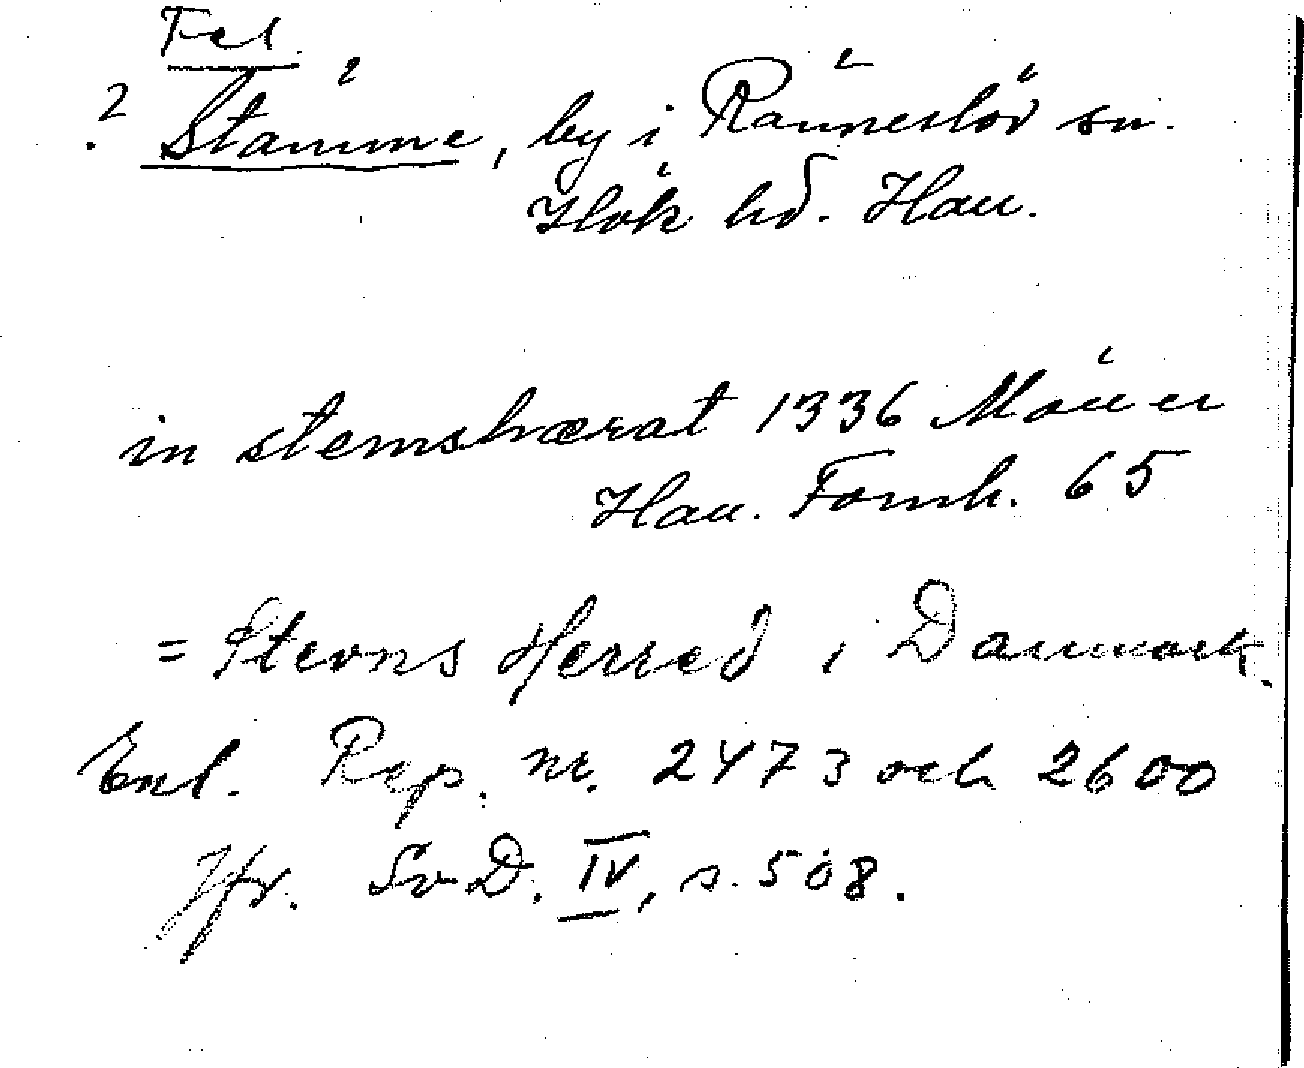 Fel.
? Stämme, by i Ränneslöv sn.
Hök hd. Hall.
in stemshærat 1336
Hall. Fornh. 65
= Stevns Herred i Danmark.
Enl. Rep. nr. 2473 och 2600
Jfr. SvD. IV, s. 508.